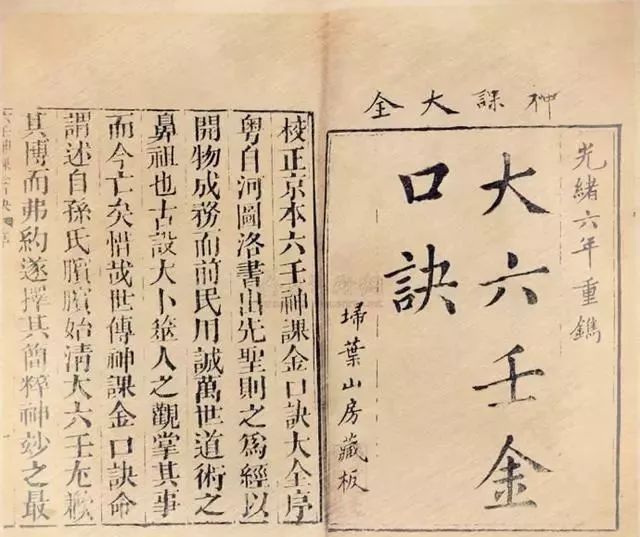 神課大全
光緒六年重鐫
大六壬金
口訣
埽葉山房藏板
校正京本六壬神課金口訣大全序
粤自河圖洛書出先聖則之爲經以
開物成務而前民用誠萬世道術之
鼻祖也古設大卜筮人之觀掌其事
而今亡矣惜哉世傳神課金口訣命
謂述自孫氏臏臏始清大六壬尤歉
其博而弗約遂擇其簡粹神妙之最